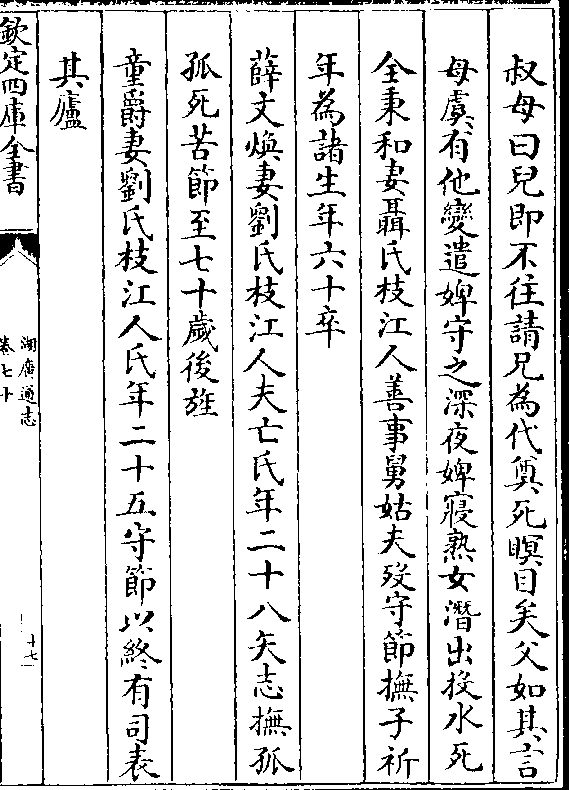 叔母曰兒即不往請兄為代奠死瞑目矣父如其言
母虞有他變遣婢守之深夜婢寢熟女潛出投水死
全秉和妻聶氏枝江人善事舅姑夫歿守節撫子祈
年為諸生年六十卒
薛文煥妻劉氏枝江人夫亡氏年二十八矢志撫孤
孤死苦節至七十歲後旌
童爵妻劉氏枝江人氏年二十五守節以終有司表
其廬
欽定四庫全書
湖廣通志
卷七十
十七